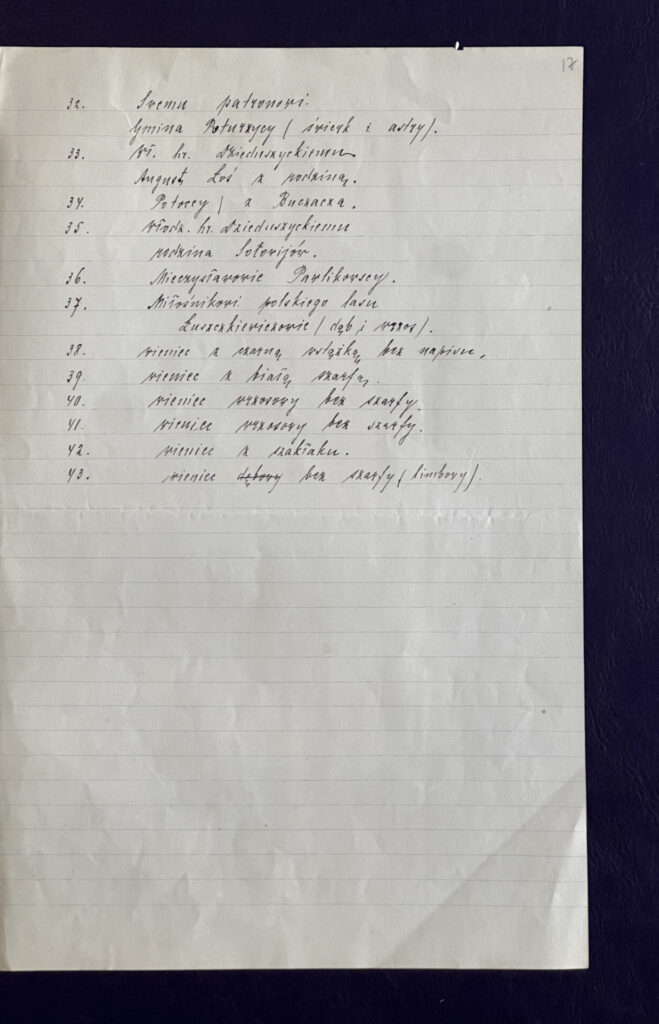 17
32. Swemu patronowi
Gmina Poturzycy (świerk i astry).
33. Wł. hr. Dzieduszyckiemu
August Łoś z rodziną.
34. Potoccy / z Buczacza.
35. Włodz. hr. Dzieduszyckiemu
rodzina Sołowijów.
36. Mieczysławowie Pawlikowscy.
37. Miłośnikowi polskiego lasu
Łuszczkiewiczowie (dąb i wrzos).
38. wieniec z czarną wstążką bez napisu.
39. wieniec z białą szarfą.
40. wieniec wrzosowy bez szarfy.
41. wieniec wrzosowy bez szarfy.
42. wieniec z szakłaku.
43. wieniec dębowy bez szarfy (limbowy).